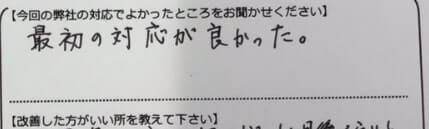 【今回の弊社の対応でよかったところをお聞かせください】
最初の対応が良かった。
【改善した方がいい所を教えて下さい】